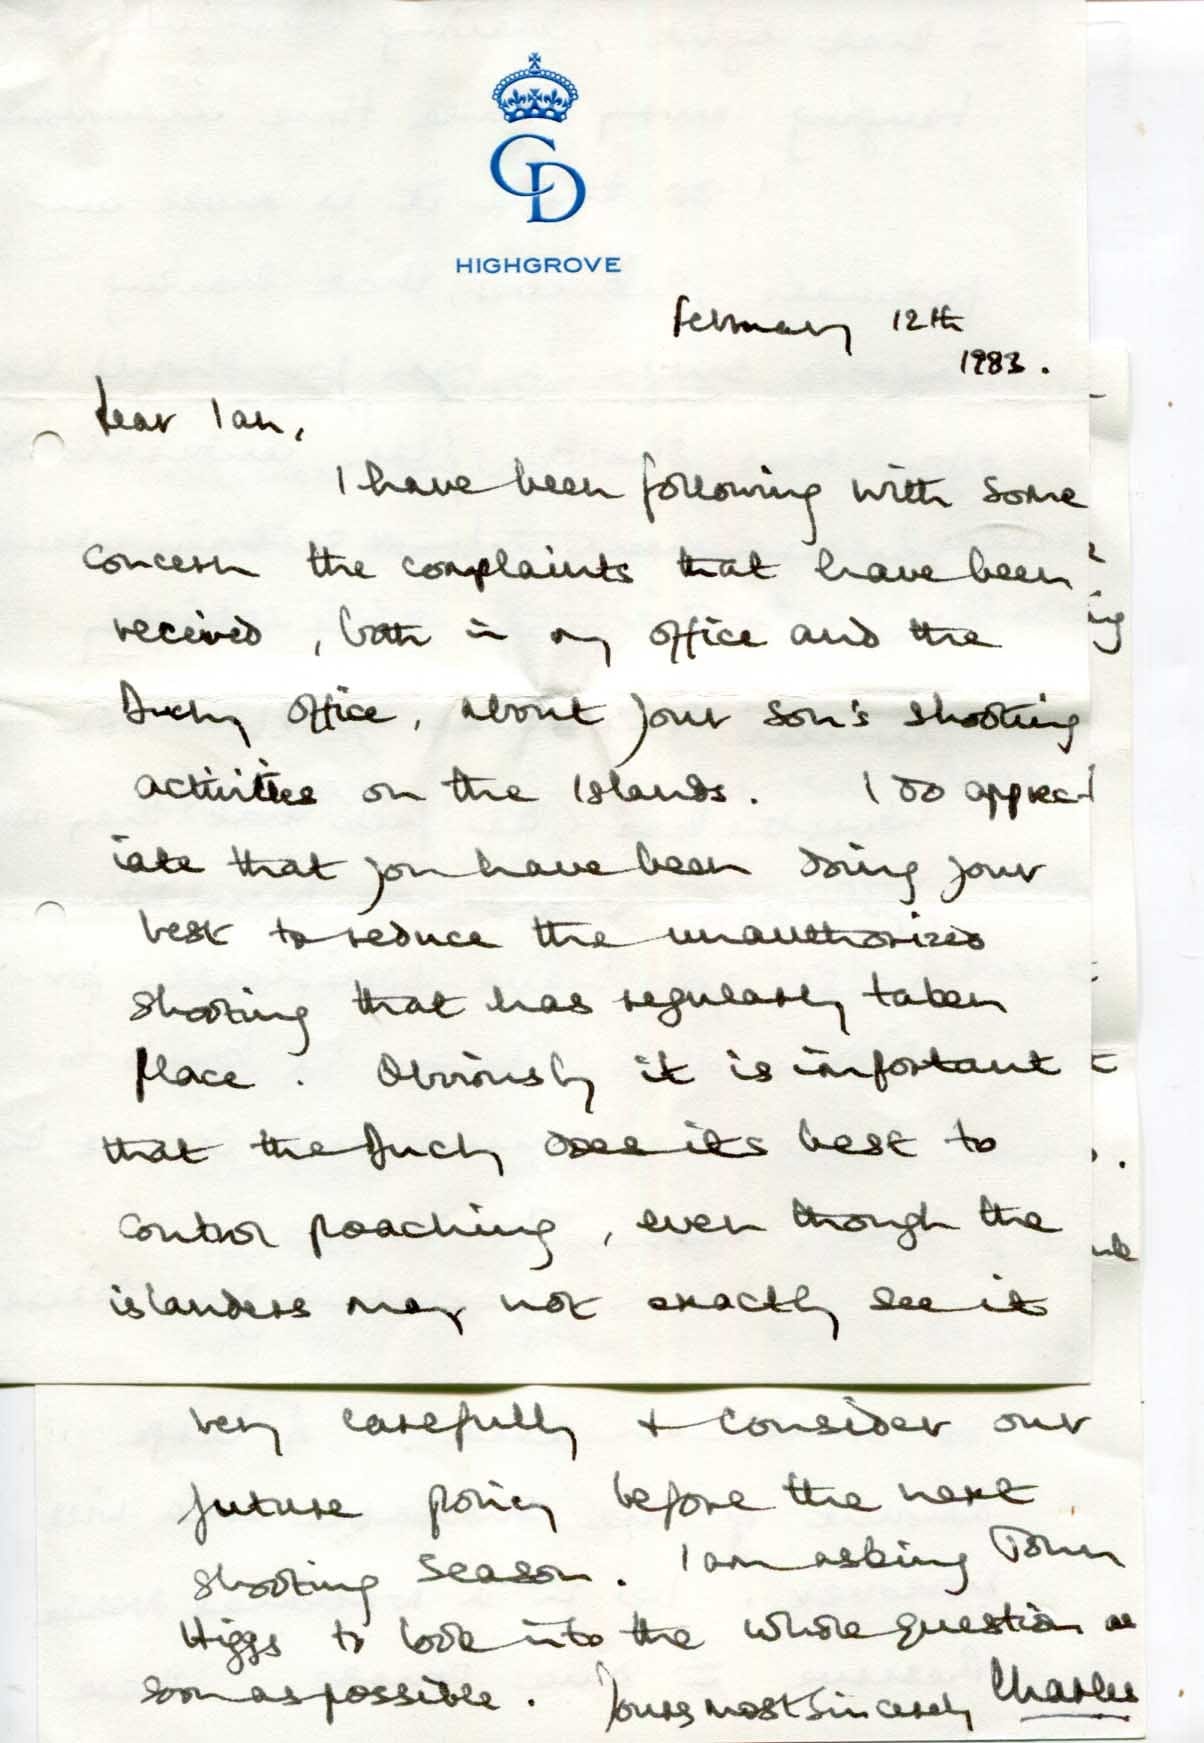 CD
HIGHGROVE
February 12th
1983.
Dear Ian,
I have been following with some
concern the complaints that have been
received, both in my office and the
Duchy office, about your son's shooting
activities on the Islands. I do apprec-
iate that you have been doing your
best to reduce the unauthorized
shooting that has regularly taken
place. Obviously it is important
that the Duchy does its best to
control poaching, even though the
islanders may not exactly see it
very carefully & consider our
future policy before the next
shooting season. I am asking John
Higgs to look into the whole question as
soon as possible. Yours most sincerely Charles